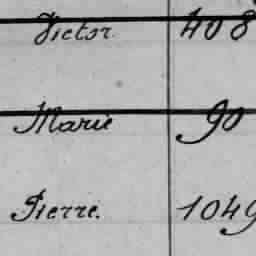 Victor 408
Marie 90
Pierre. 1049